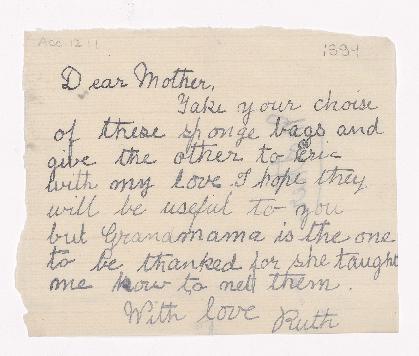 Acc 1211
1894
Dear Mother,
Take your choise
of these sponge bags and
give the other to Eric
with my love. I hope they
will be useful to you
but Grandmama is the one
to be thanked for she taught
me how to net them.
With love Ruth